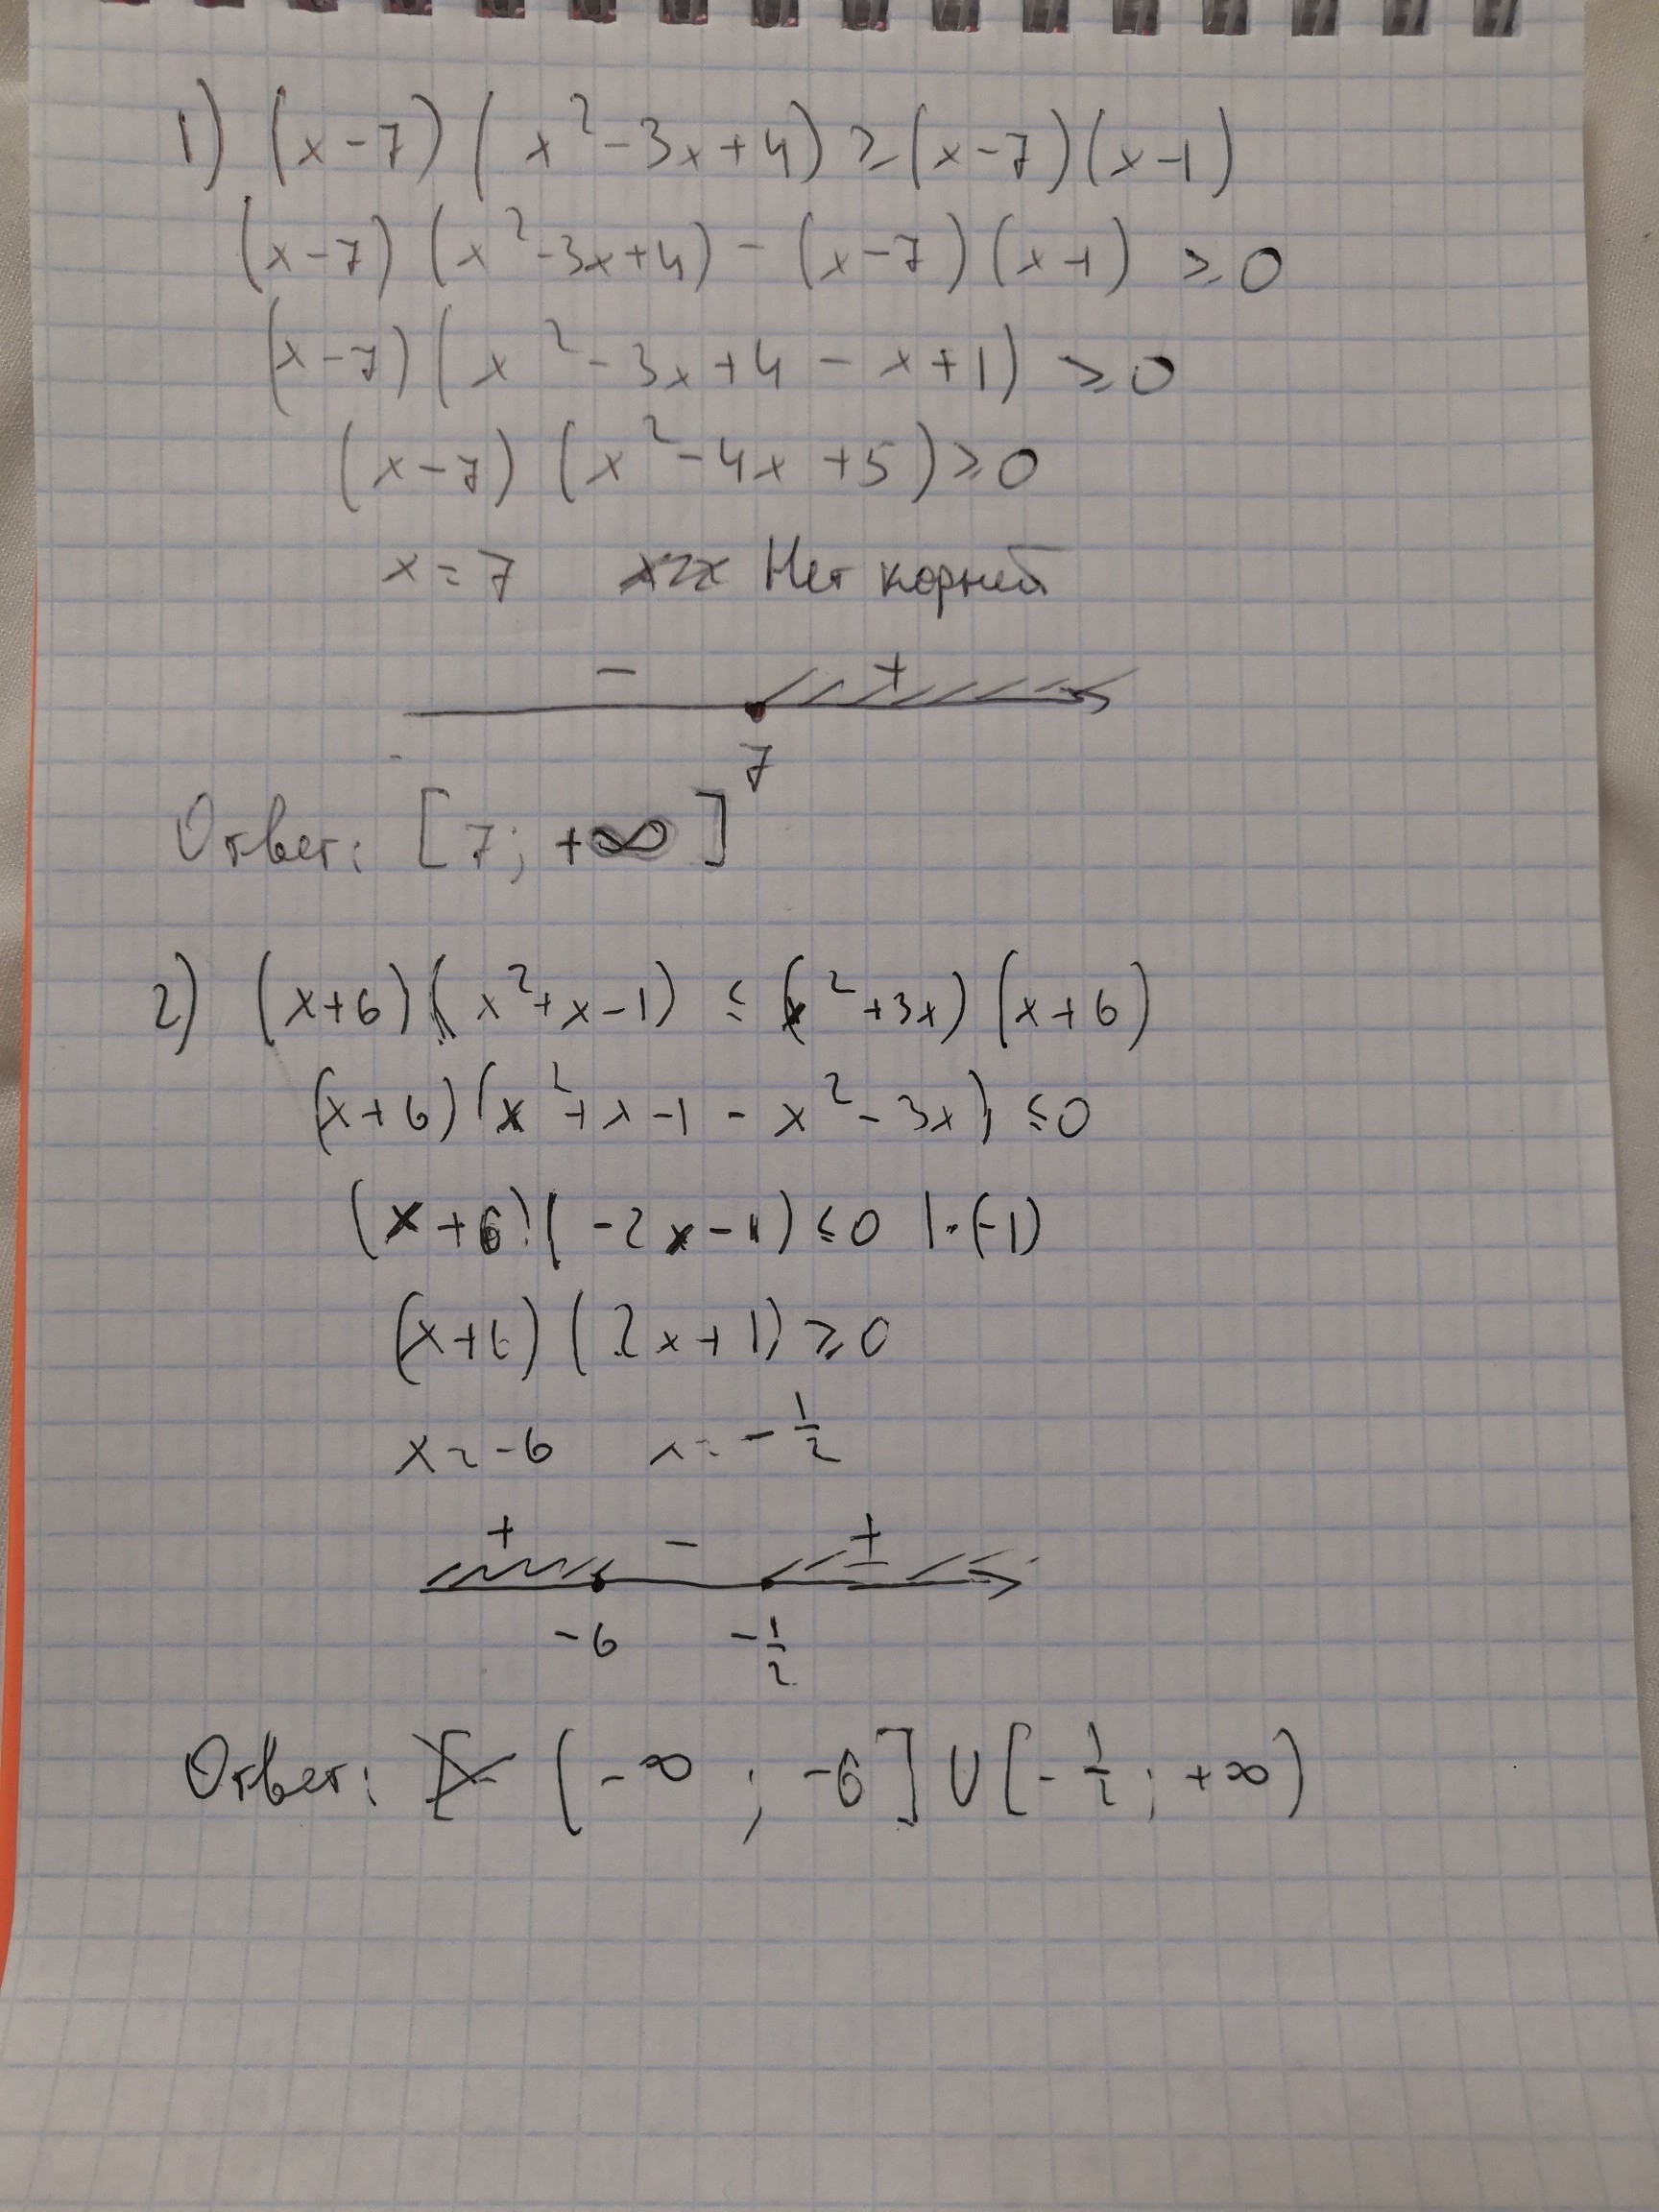 1) (x-7)(x²-3x+4) ≥ (x-7)(x-1)
(x-7)(x²-3x+4) - (x-7)(x-1) ≥ 0
(x-7)(x²-3x+4-x+1) ≥ 0
(x-7)(x²-4x+5) ≥ 0
x=7 Нет корней
- +
7
Ответ: [7; +∞]
2) (x+6)(x²+x-1) ≤ (x²+3x)(x+6)
(x+6)(x²+x-1-x²-3x) ≤ 0
(x+6)(-2x-1) ≤ 0 |·(-1)
(x+6)(2x+1) ≥ 0
x=-6 x=-1/2
+ - +
-6 -1/2
Ответ: (-∞; -6] ∪ [-1/2; +∞)